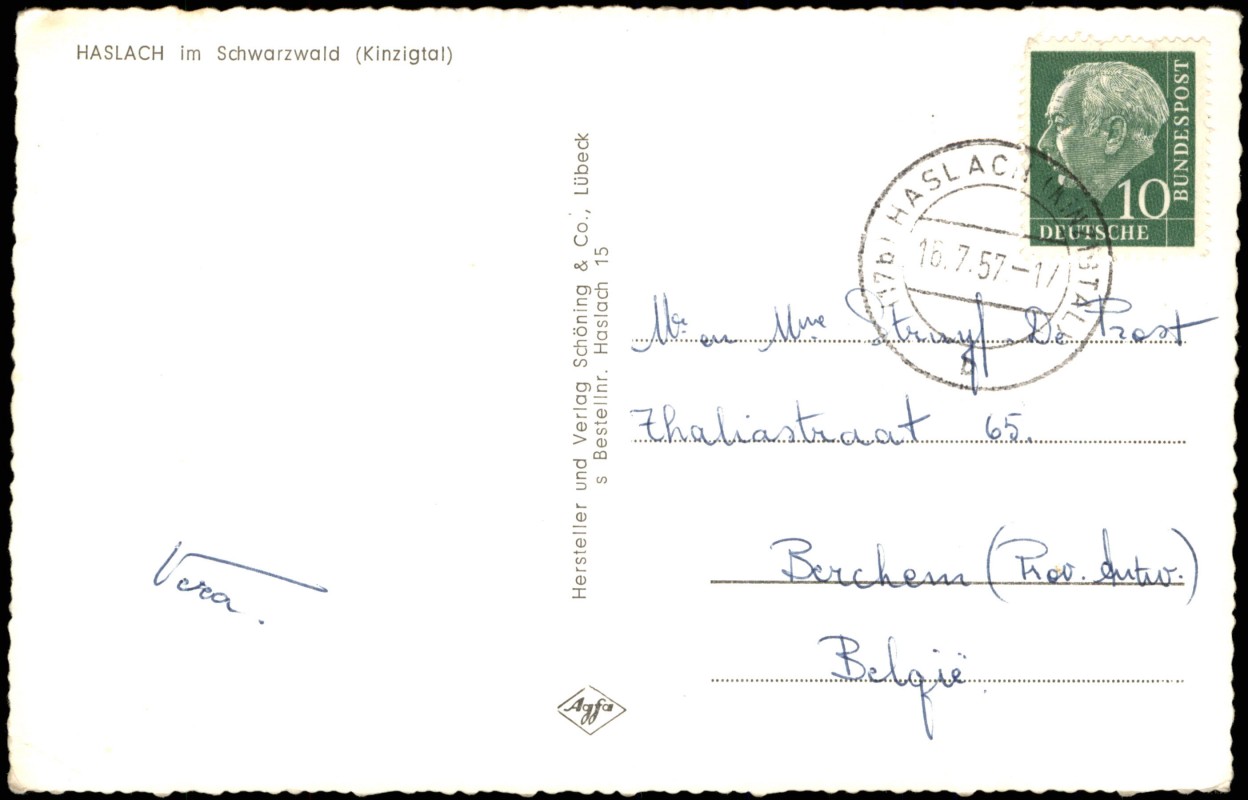 HASLACH im Schwarzwald (Kinzigtal)
Hersteller und Verlag Schöning & Co., Lübeck
s Bestellnr. Haslach 15
BUNDESPOST
10
DEUTSCHE
(17b) HASLACH (KINZIGTAL)
16.7.57.-17
b
Mr en Mme Struyf. De Prost
Thaliastraat 65.
Berchem (Prov. Antw.)
België
Vera.
Agfa